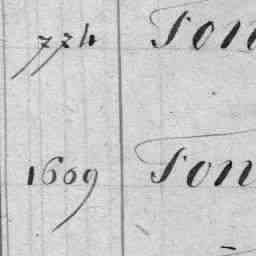 774 Ton
1609 Ton